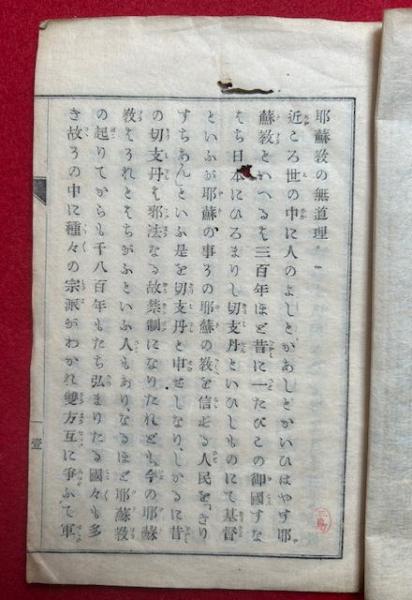 耶蘇教の無道理 一
近ころ世の中に人のよしとかあしとかいひはやす耶
蘇教といへるは三百年ほど昔に一たびこの御國すな
はち日本にひろまりし切支丹といひしものにて基督
といふが耶蘇の事その耶蘇の教を信ずる人民をきり
すちあんといふ是を切支丹と申せしなりしかるに昔
の切支丹は邪法なる故禁制になりたれども今の耶蘇
教はそれとはちがふといふ人もありなるほど耶蘇教
の起りてからも千八百年もたち弘まりたる國々も多
き故その中に種々の宗派がわかれ雙方互に爭ふて軍
壹